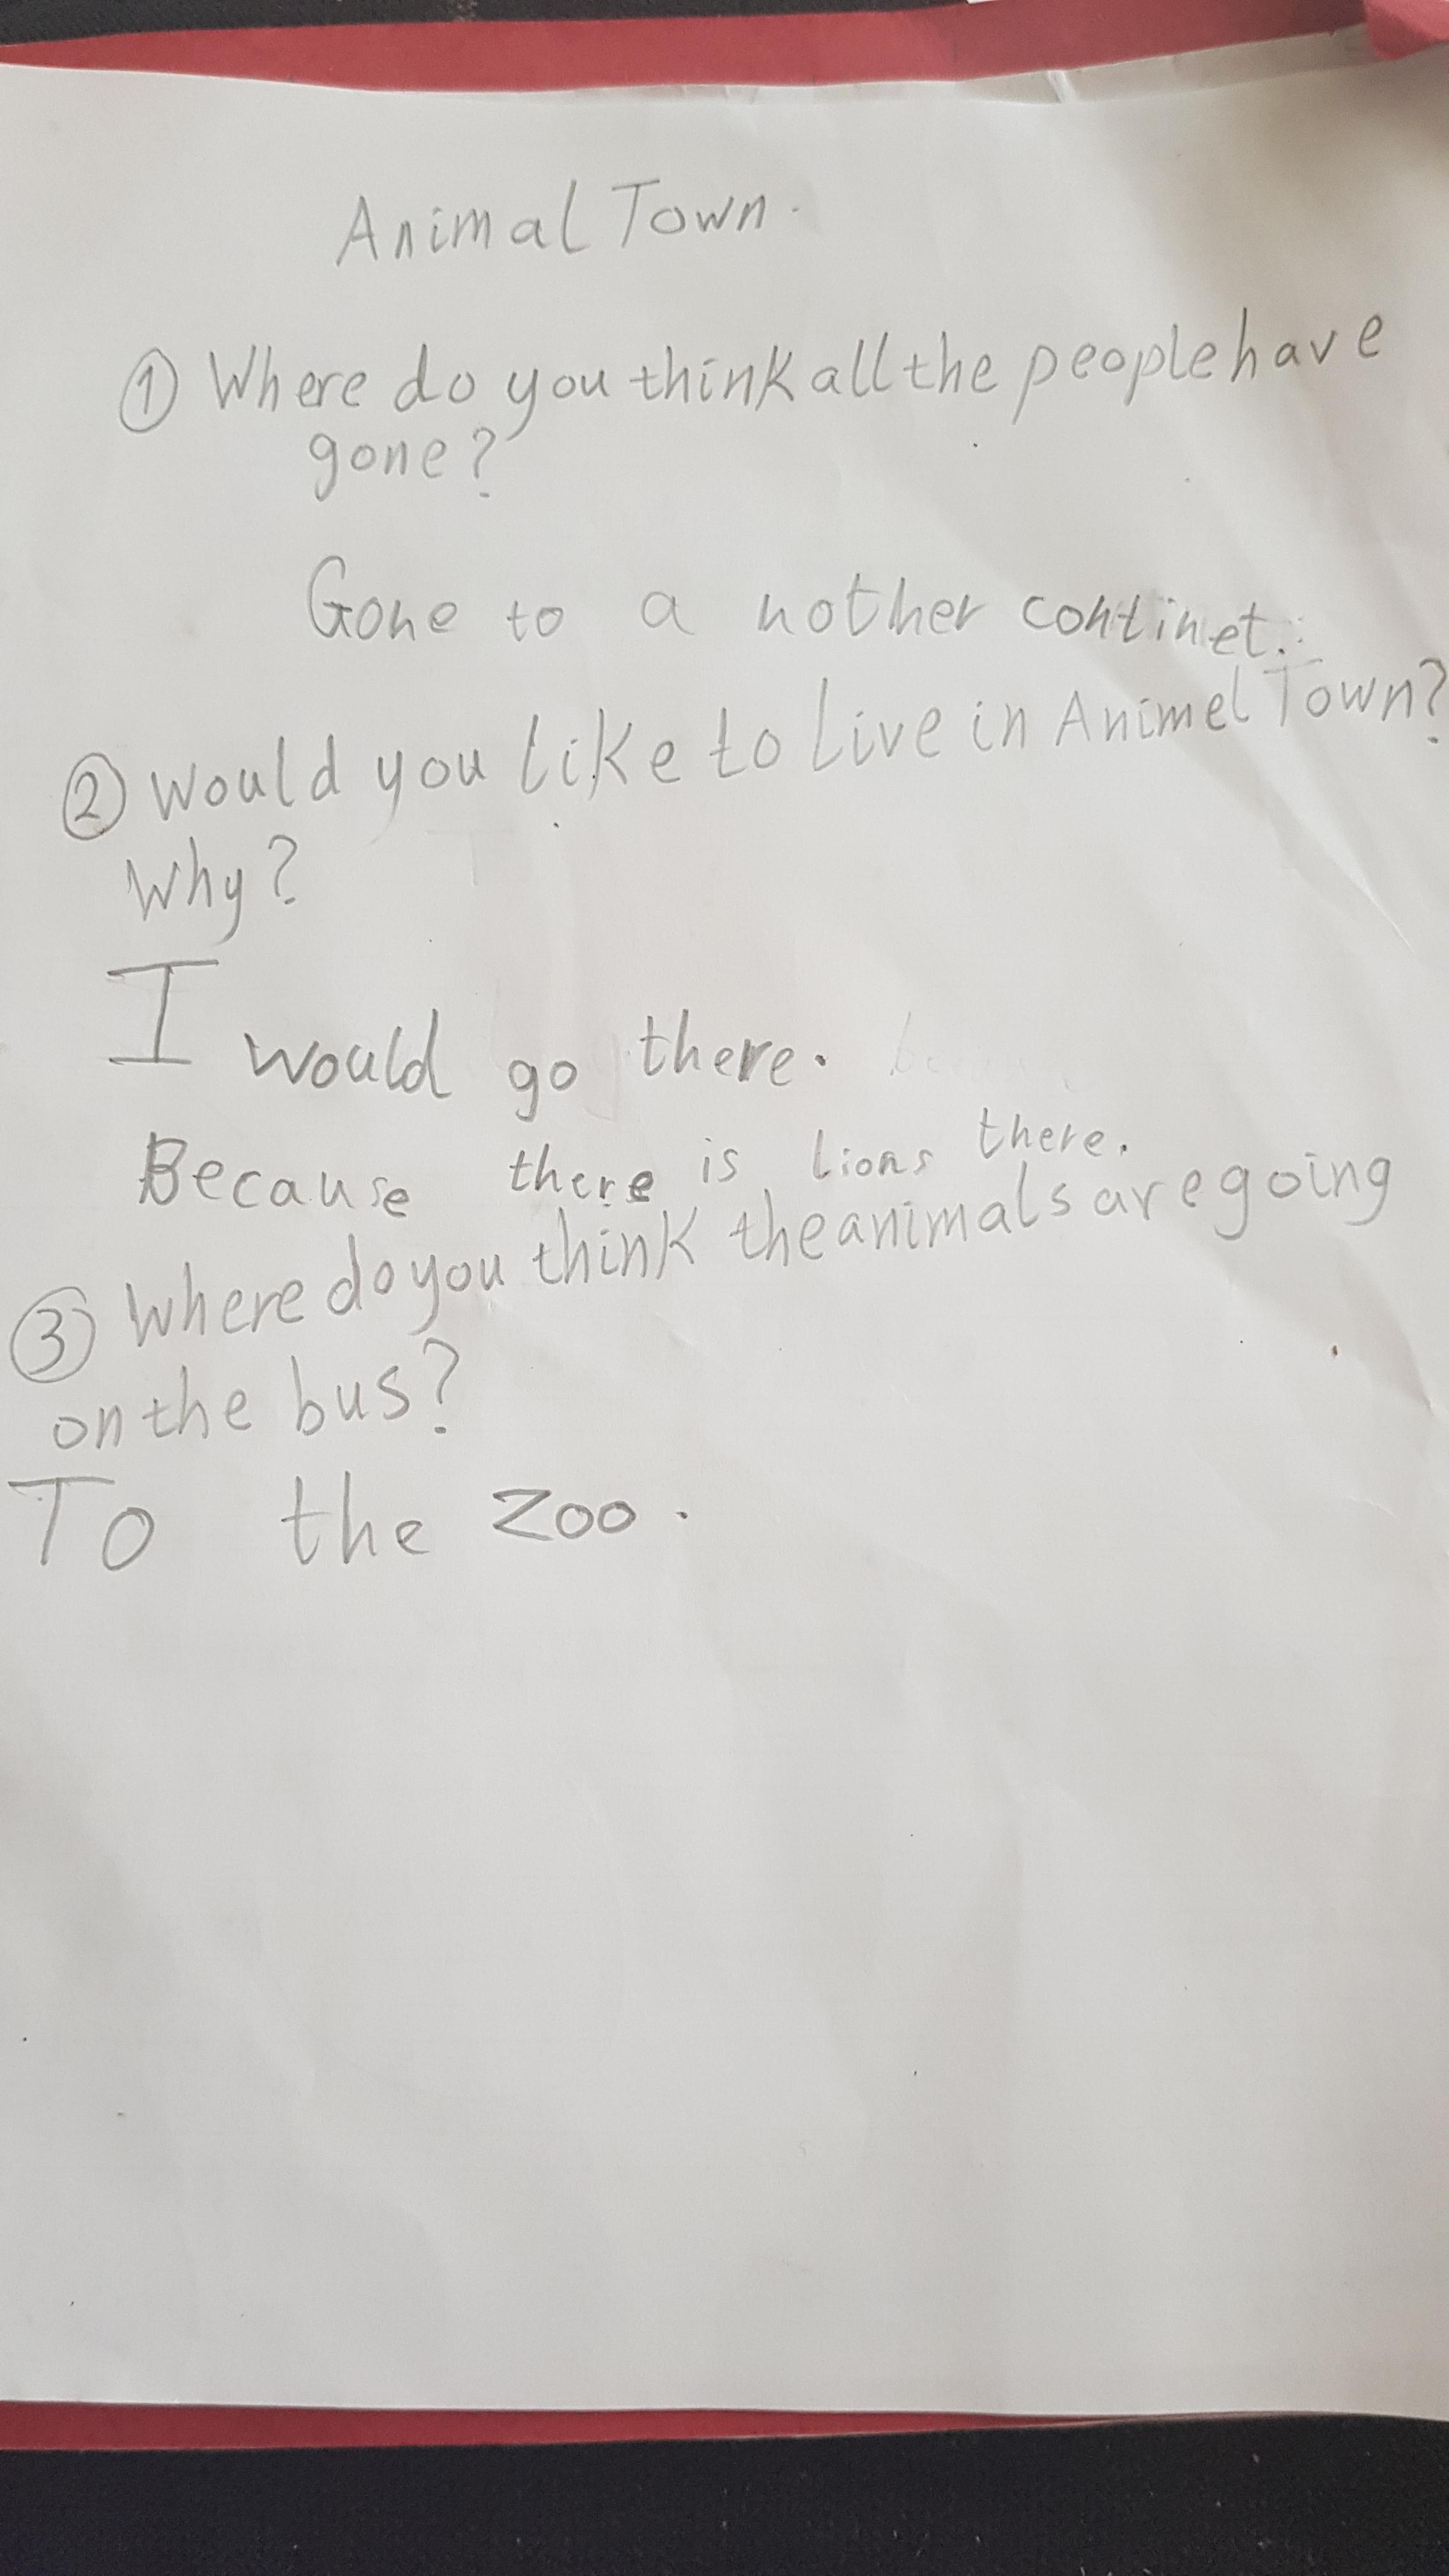 Animal Town.
① Where do you think all the people have
gone?
Gone to a nother continet.
② Would you like to Live in Animel Town?
Why?
I would go there.
Because there is lions there.
③ Where do you think the animals are going
on the bus?
To the zoo.